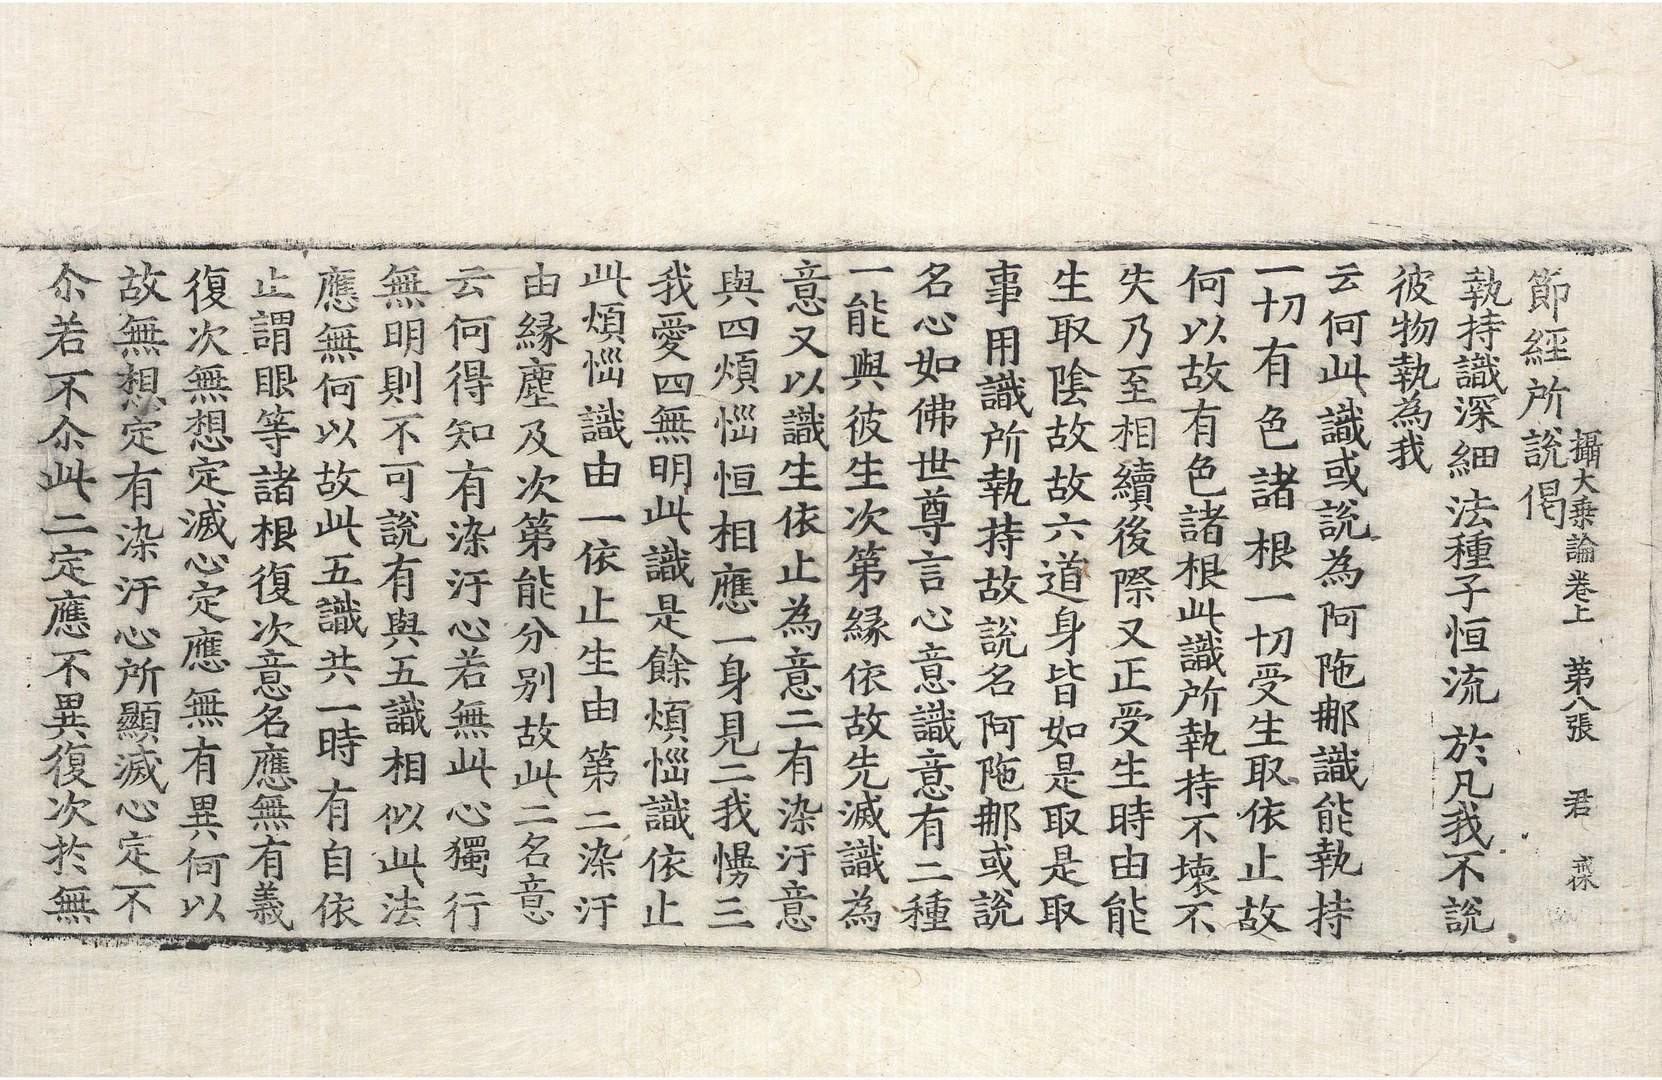 節經所說偈
攝大乗論卷上　第八張　君　戒休
執持識深細　法種子恒流　於凡我不說
彼物執為我
云何此識或說為阿陁那識能執持
一切有色諸根一切受生取依止故
何以故有色諸根此識所執持不壞不
失乃至相續後際又正受生時由能
生取陰故故六道身皆如是取是取
事用識所執持故說名阿陁那或說
名心如佛世尊言心意識意有二種
一能與彼生次第緣依故先滅識為
意又以識生依止為意二有染汙意
與四煩惱恒相應一身見二我慢三
我愛四無明此識是餘煩惱識依止
此煩惱識由一依止生由第二染汙
由緣塵及次第能分別故此二名意
云何得知有染汙心若無此心獨行
無明則不可說有與五識相似此法
應無何以故此五識共一時有自依
止謂眼等諸根復次意名應無有義
復次無想定滅心定應無有異何以
故無想定有染汙心所顯滅心定不
尒若不尒此二定應不異復次於無